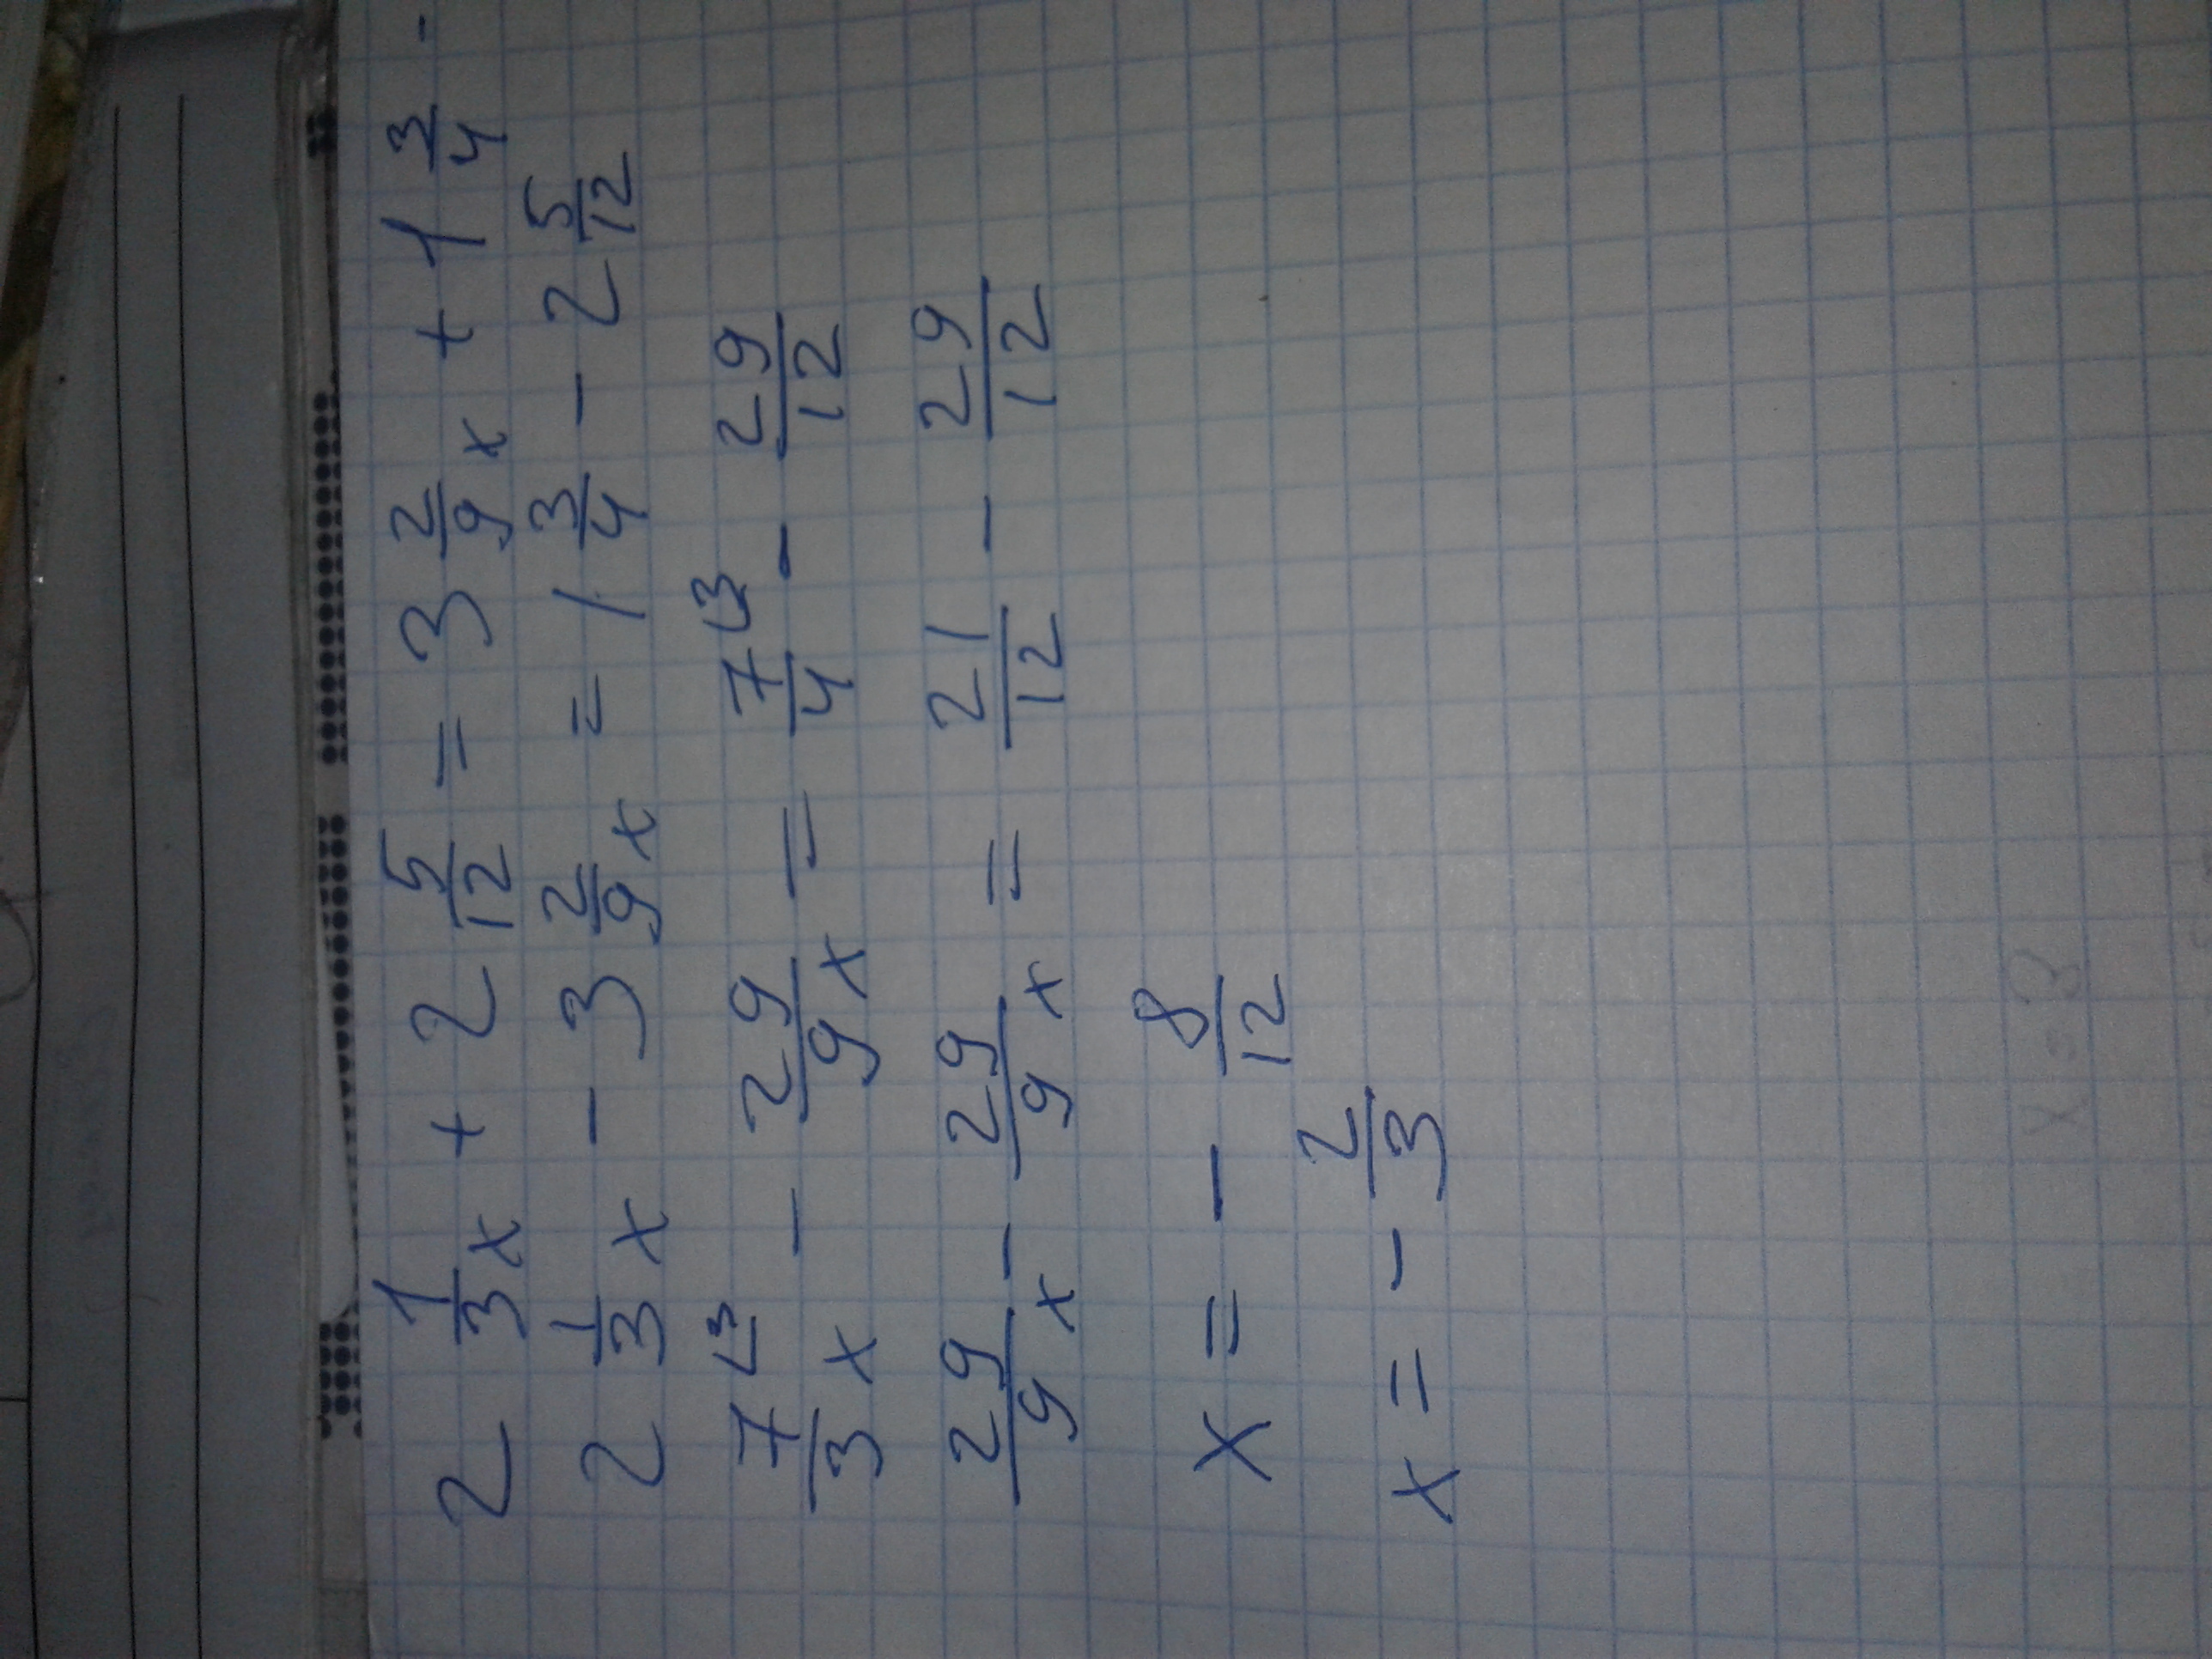 2 1/3 x + 2 5/12 = 3 2/9 x + 1 3/4 -
2 1/3 x - 3 2/9 x = 1 3/4 - 2 5/12
7/3 ∟3 x - 29/9 x = 7/4 ∟3 - 29/12
29/9 x - 29/9 x = 21/12 - 29/12
x = - 8/12
x = - 2/3
x = 3